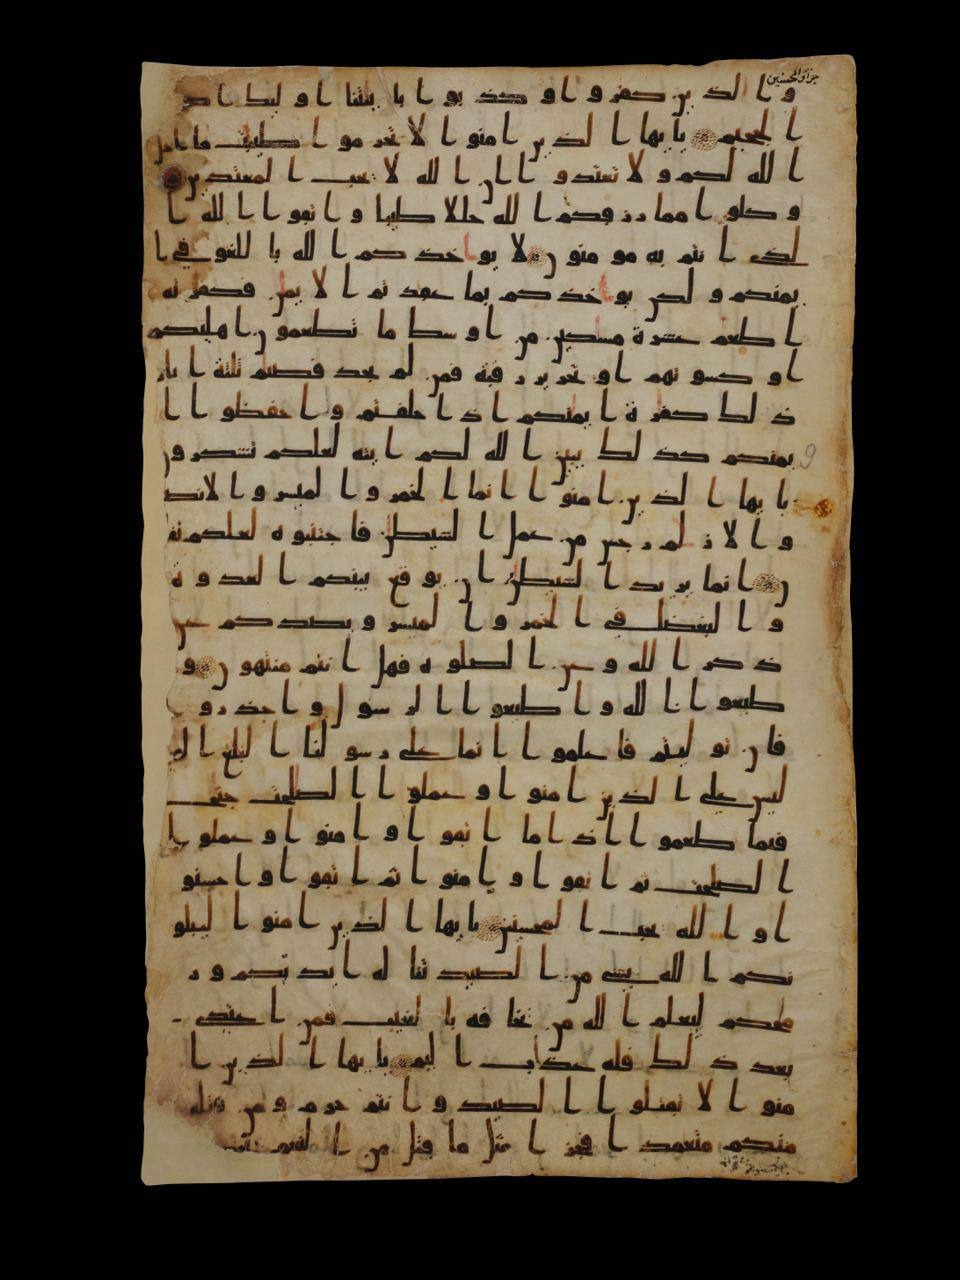 جزاؤ المحسنين
و ا لذ ين كفر و ا و كذ بو ا با يتنا ا و ليك ا صحب
ا لجحيم يا يها ا لذ ين ا منو ا لا تحر مو ا طيبت ما احل
ا لله لكم و لا تعتد و ا ا ن ا لله لا يحب ا لمعتد ين
و كلو ا مما ر ز قكم ا لله حللا طيبا و ا تقو ا ا لله ا
لذ ي ا نتم به مو منو ن لا يو ا خذ كم ا لله با للغو في ا
يمنكم و لكن يو ا خذ كم بما عقد تم ا لا يمن فكفر ته
ا طعم عشر ة مسكين من ا و سط ما تطعمو ن ا هليكم
ا و كسو تهم ا و تحر ير ر قبة فمن لم يجد فصيم ثلثة ا يا م
ذ لك كفر ة ا يمنكم ا ذ ا حلفتم و ا حفظو ا ا
يمنكم كذ لك يبين ا لله لكم ا يته لعلكم تشكر و ن
يا يها ا لذ ين ا منو ا ا نما ا لخمر و ا لميسر و ا لانصا
و ا لا ز لم ر جس من عمل ا لشيطن فا جتنبو ه لعلكم تفلحو
ن ا نما ير يد ا لشيطن ا ن يو قع بينكم ا لعد و ة
و ا لبغضا في ا لخمر و ا لميسر و يصد كم عن
ذ كر ا لله و عن ا لصلو ة فهل ا نتم منتهو ن و
طيعو ا ا لله و ا طيعو ا ا لر سو ل و ا حذ ر و ا
فا ن تو ليتم فا علمو ا ا نما على ر سو لنا ا لبلغ ا لمبين
ليس على ا لذ ين ا منو ا و عملو ا ا لصلحت جنح
فيما طعمو ا ا ذ ا ما ا تقو ا و ا منو ا و عملو ا
ا لصلحت ثم ا تقو ا و ا منو ا ثم ا تقو ا و ا حسنو
ا و ا لله يحب ا لمحسنين يا يها ا لذ ين ا منو ا ليبلو
نكم ا لله بشي من ا لصيد تنا له ا يد يكم و ر
محكم ليعلم ا لله من يخا فه با لغيب فمن ا عتدى
بعد ذ لك فله عذ اب ا ليم يا يها ا لذ ين ا
منو ا لا تقتلو ا ا لصيد و ا نتم حر م و من قتله
منكم متعمد ا فجز ا مثل ما قتل من ا لنعم يحكم